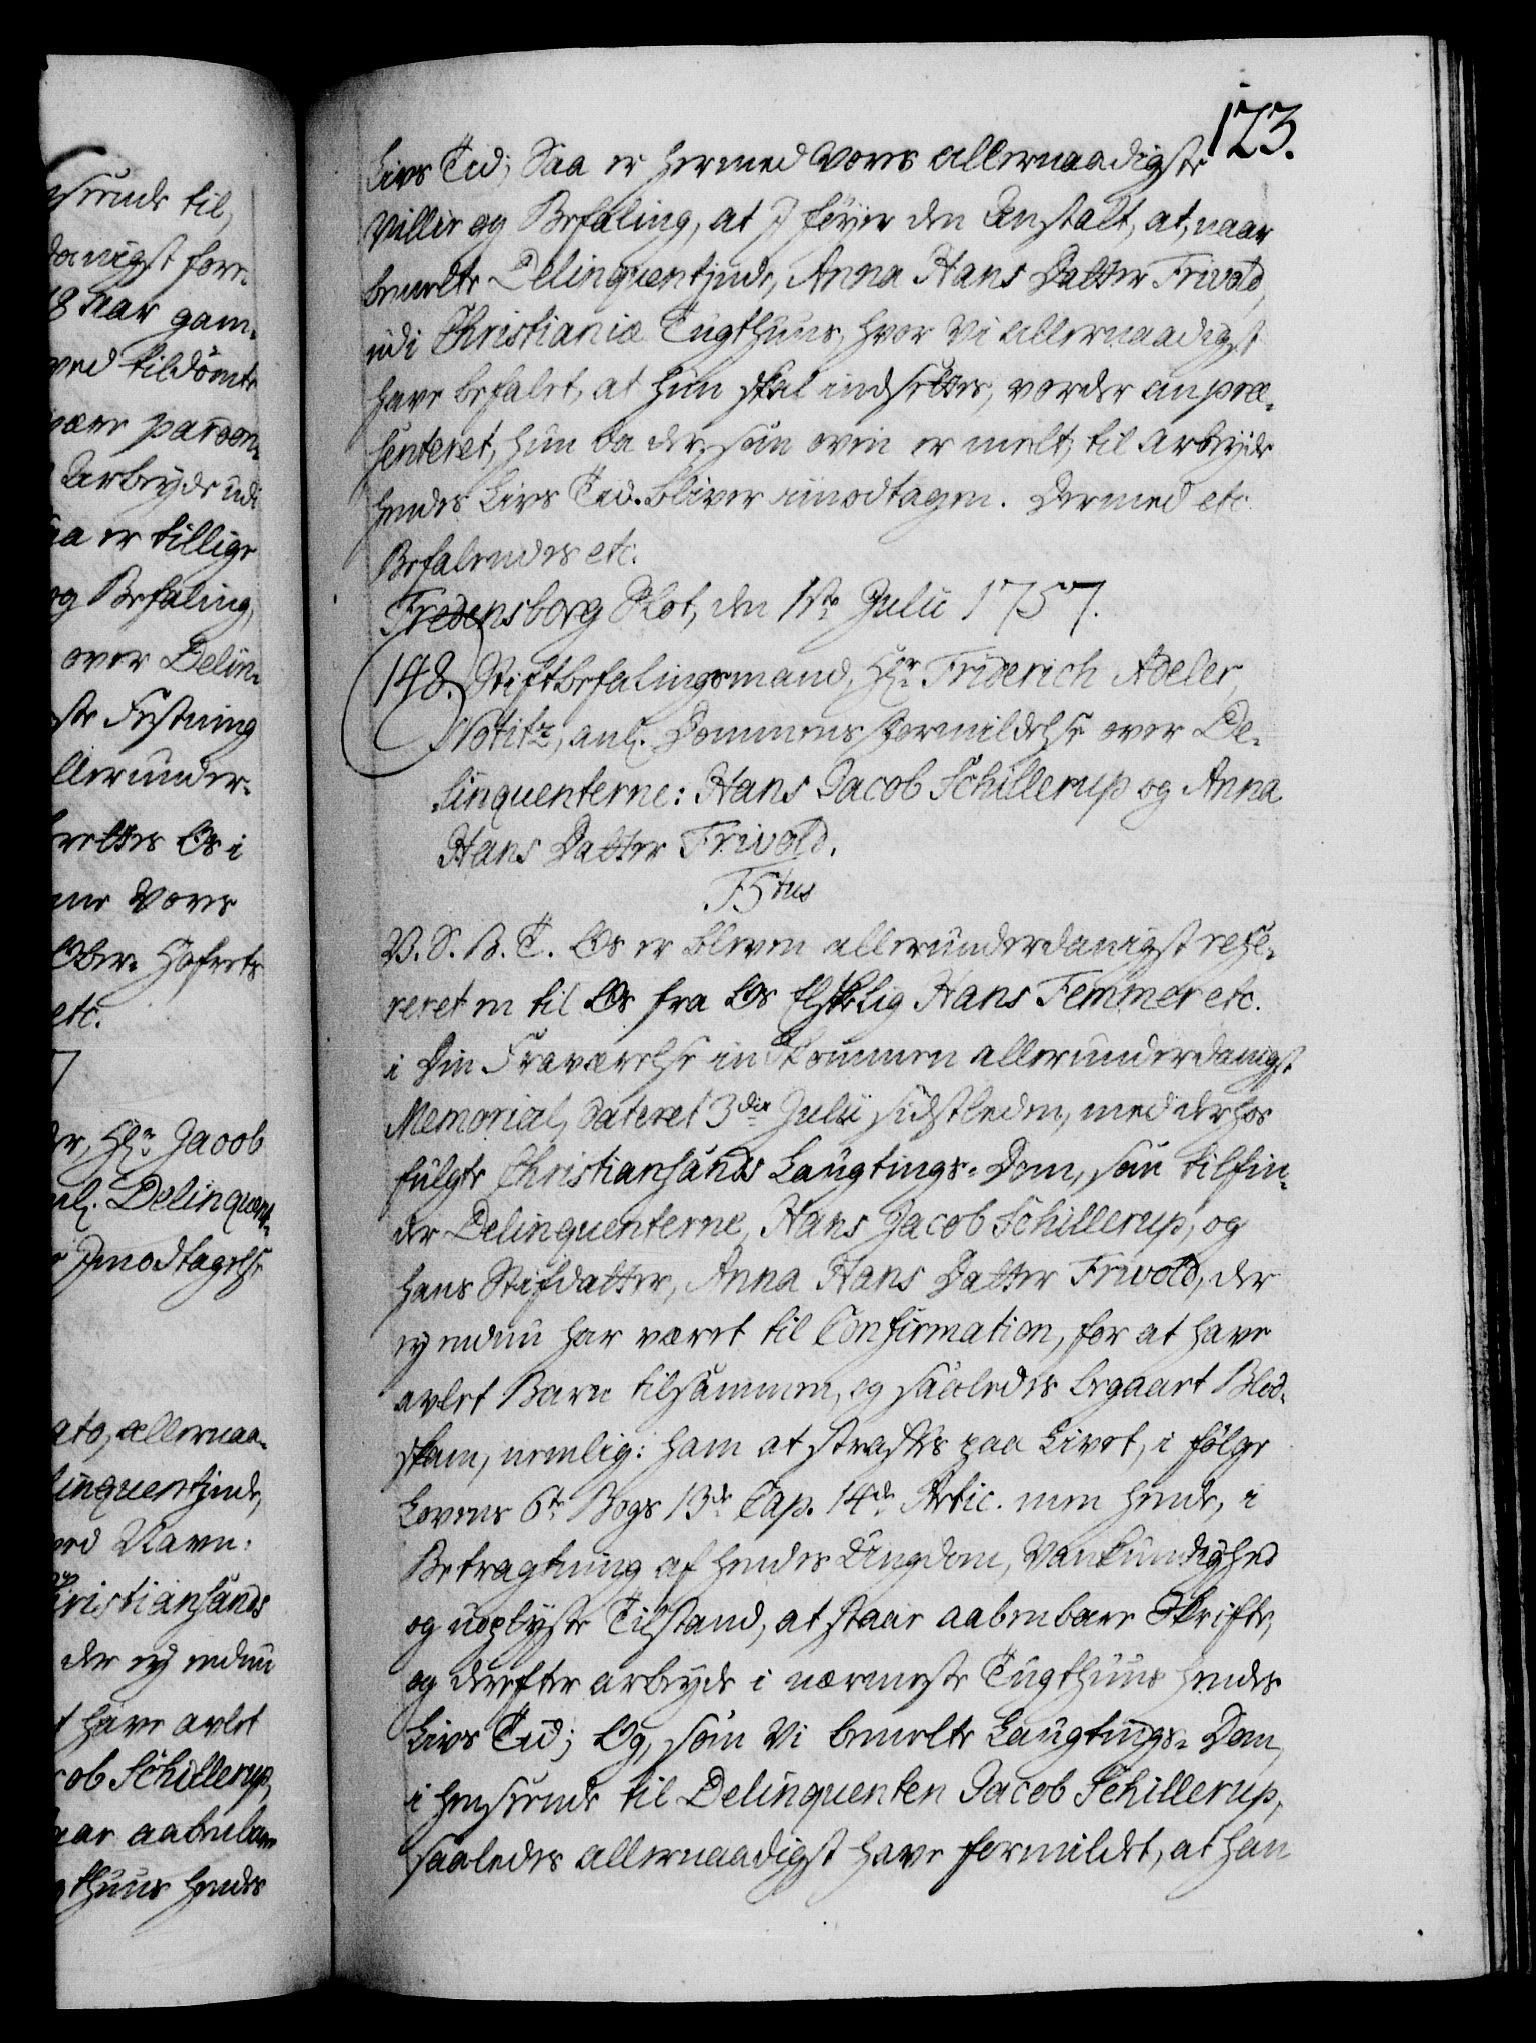 123.
Livs Tid; Saa er hermed Vores allernaadigste
Villie og Befaling, at I føyer den Anstalt, at, naar
bemelte Delinquentinde, Anna Hans Datter Frivold,
udi Christiania Tugthuus, hvor Vi allernaadigst
have befalet, at hun skal indsettes, vorder anpræ-
senteret, hun da der, som oven er melt, til Arbeyde
hendes Livs Tid bliver imodtagen. Dermed etc.
Befalendes etc.
Fredensborg Slot, den 1ste Julii 1757.
148. Stiftbefalingsmand, Hr. Friderich Adeler,
Notitz, anl. Dommens Formildelse over De-
linquenterne: Hans Jacob Schillerup og Anna
Hans Datter Frivold.
F5tus
V. S. B. T. Os er bleven allerunderdanigst refe-
reret en til Os fra Os Elskelig Hans Femmer etc.
i Din Fraværelse indkommen allerunderdanigst
Memorial, dateret 3die Julii sidstleden, med derhos
fulgte Christiansands Laugtings-Dom, som tilfin-
der Delinquenterne, Hans Jacob Schillerup, og
hans Stifdatter, Anna Hans Datter Frivold, der
ey endnu har været til Confirmation, for at have
avlet Barn tilsammen, og saaledes begaaet Blod-
skam, nemlig: ham at straffes paa Livet, i følge
Lovens 6te Bogs 13de Cap. 14de Artic. men hende, i
Betragtning af hendes Ungdom, Vankundighed
og uoplyste Tilstand, at staae aabenbare Skrifte,
og derefter arbeyde i nærmeste Tugthuus hendes
Livs Tid; Og, som Vi bemelte Laugtings-Dom,
i henseende til Delinquenten Jacob Schillerup,
saaledes allernaadigst have formildet, at han